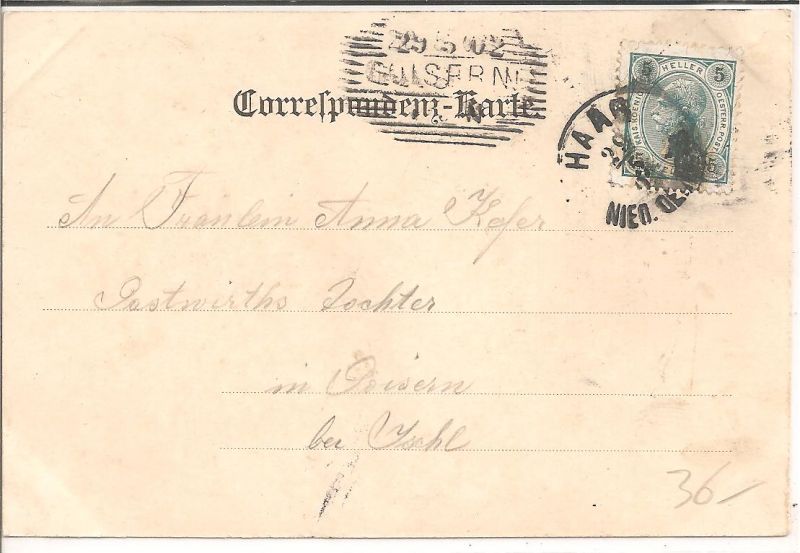 29 5 02
GOISERN
Correspondenz-Karte
HAAG
NIED. OE
5 HELLER 5
KAIS. KOENIGL. OESTERR. POST
An Fräulein Anna Kefer
Postwirths Tochter
in Goisern
bei Ischl
36/-